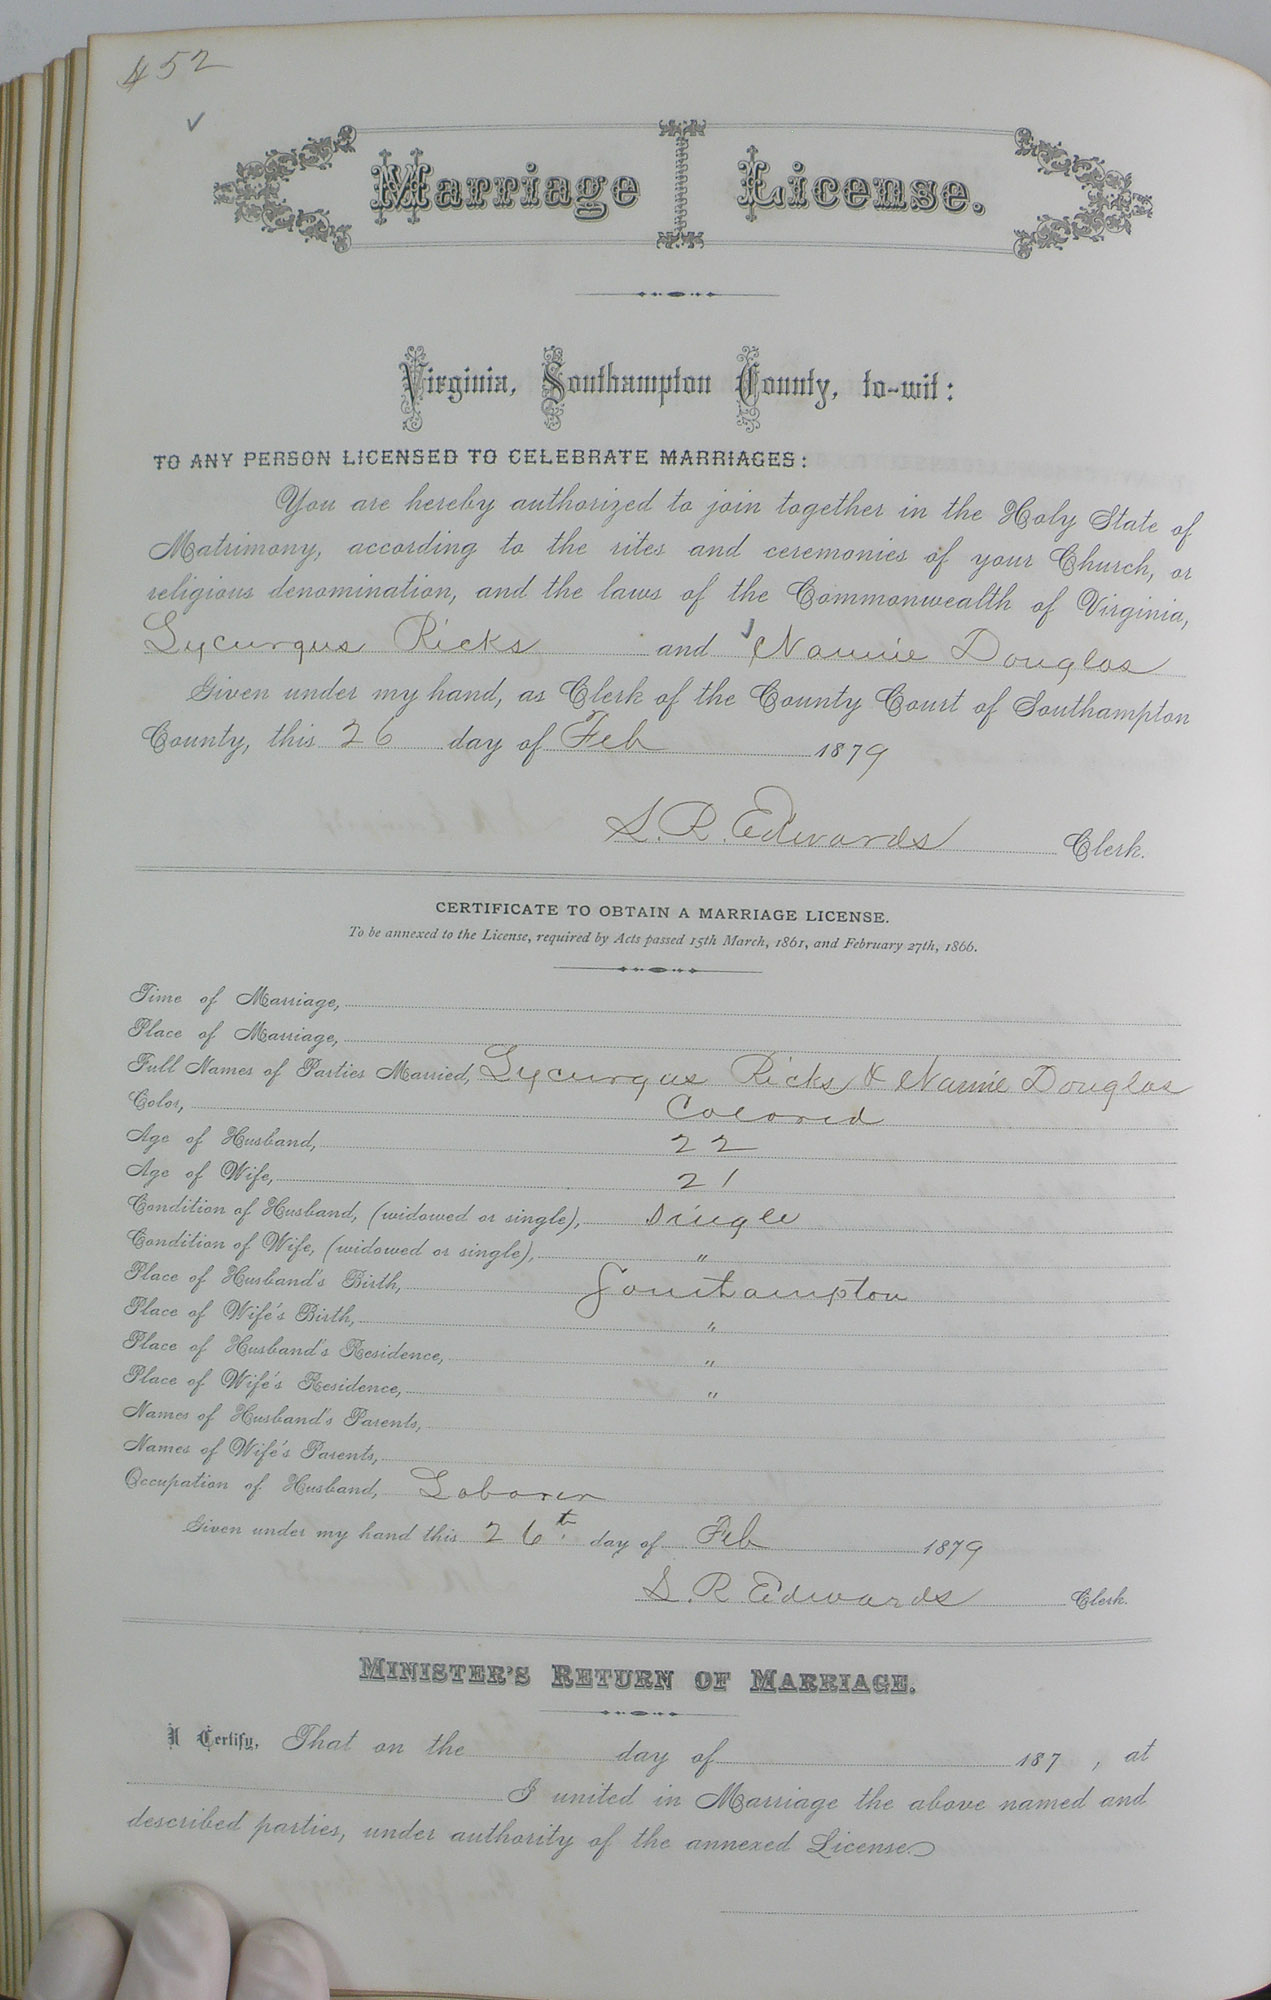 452
✓
Marriage License.
Virginia, Southampton County, to-wit:
TO ANY PERSON LICENSED TO CELEBRATE MARRIAGES:
You are hereby authorized to join together in the Holy State of
Matrimony, according to the rites and ceremonies of your Church, or
religious denomination, and the laws of the Commonwealth of Virginia,
Lycurgus Ricks and ✓ Nannie Douglas
Given under my hand, as Clerk of the County Court of Southampton
County, this 26 day of Feb 1879
S. R. Edwards Clerk.
CERTIFICATE TO OBTAIN A MARRIAGE LICENSE.
To be annexed to the License, required by Acts passed 15th March, 1861, and February 27th, 1866.
Time of Marriage,
Place of Marriage,
Full Names of Parties Married, Lycurgus Ricks & Nannie Douglas
Color, Colored
Age of Husband, 22
Age of Wife, 21
Condition of Husband, (widowed or single), Single
Condition of Wife, (widowed or single), "
Place of Husband's Birth, Southampton
Place of Wife's Birth, "
Place of Husband's Residence, "
Place of Wife's Residence, "
Names of Husband's Parents,
Names of Wife's Parents,
Occupation of Husband, Laborer
Given under my hand this 26th day of Feb 1879
S. R. Edwards Clerk.
MINISTER'S RETURN OF MARRIAGE.
I Certify, That on the day of 187 , at
I united in Marriage the above named and
described parties, under authority of the annexed License.